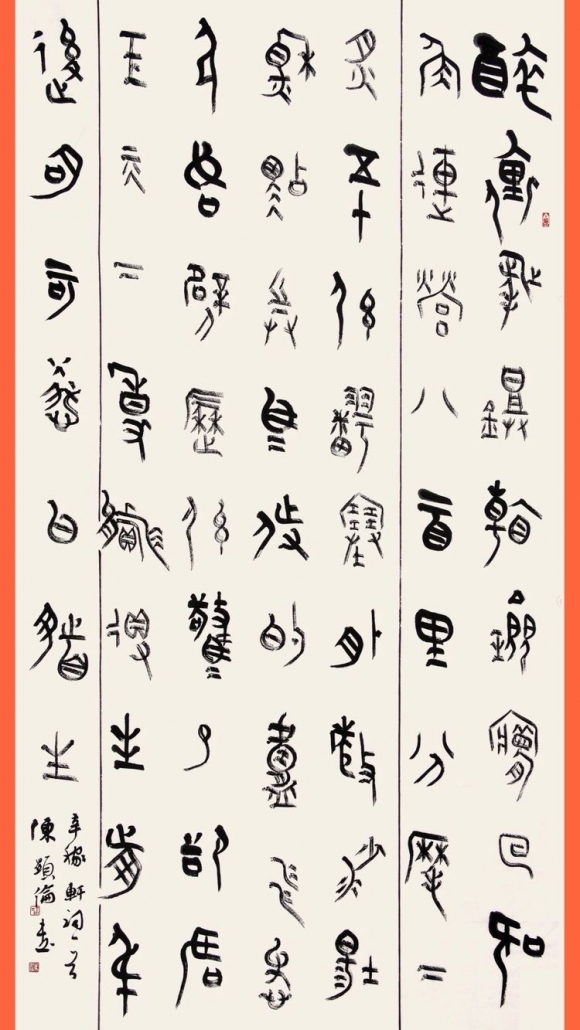 醉裏挑鐙看劍夢回吹
角連營八百里分麾下
炙五十弦翻塞外聲沙場
秋點兵馬作的盧飛快
弓如霹靂弦驚了卻君
王天下事贏得生前身
後名可憐白髮生
辛稼軒詞一首
陳顯倫書